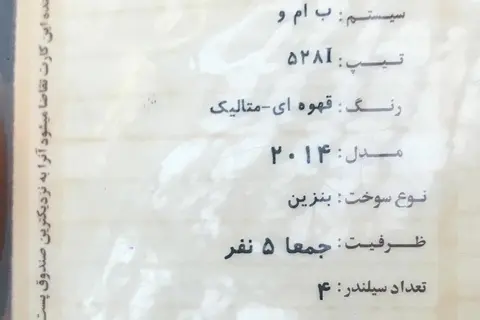 سیستم: ب ام و
تیپ: ۵۲۸I
رنگ: قهوه ای-متالیک
مدل: ۲۰۱۴
نوع سوخت: بنزین
ظرفیت: جمعا ۵ نفر
تعداد سیلندر: ۴
نده این کارت تقاضا میشود آنرا به نزدیکترین صندوق پست